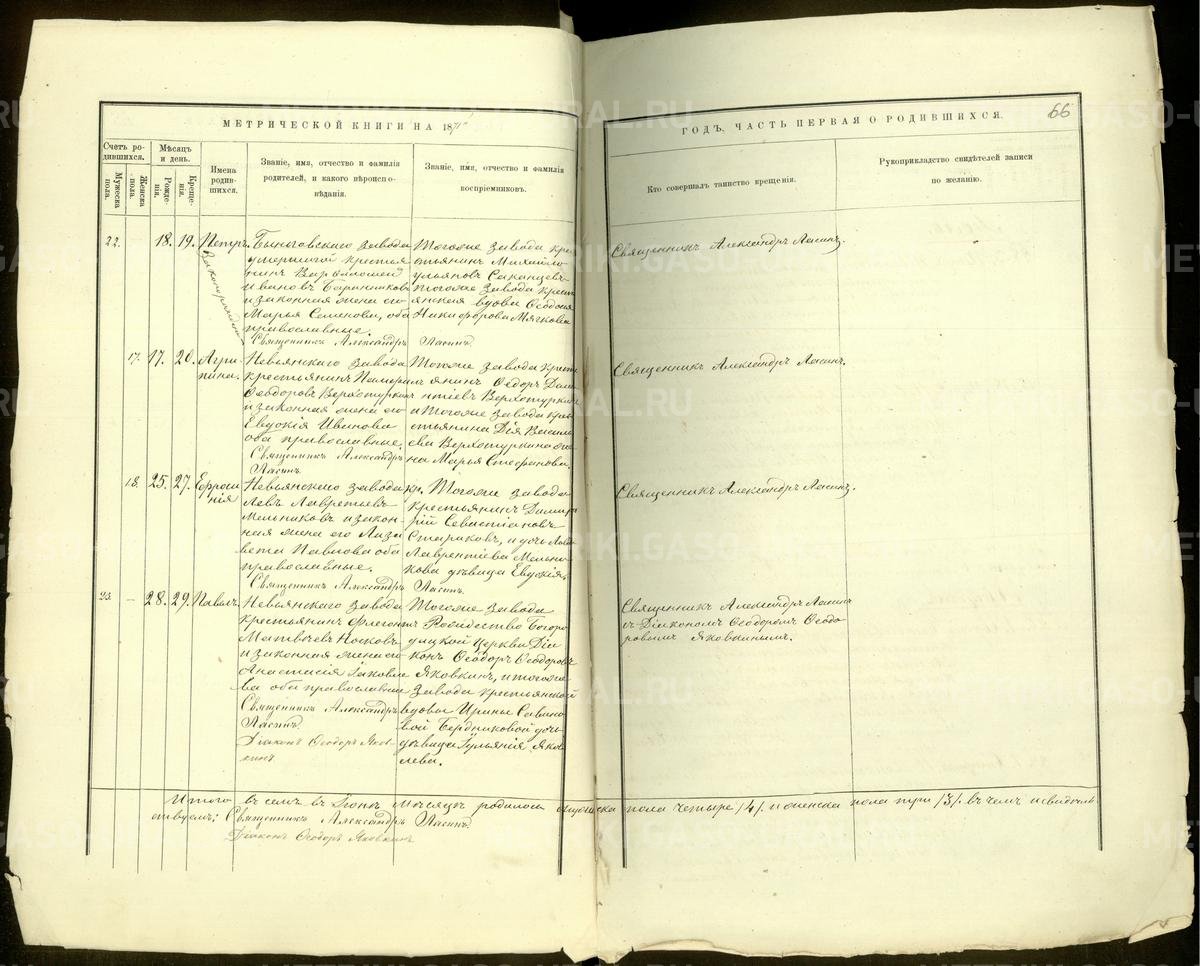 МЕТРИЧЕСКОЙ КНИГИ НА 1871
ГОДЪ, ЧАСТЬ ПЕРВАЯ О РОДИВШИХСЯ.
66
Счетъ родившихся.
Мужеска пола.
Женска пола.
Мѣсяцъ и день.
Рожденія.
Крещенія.
Имена родившихся.
Званіе, имя, отчество и фамилія
родителей, и какого вѣроиспо-
вѣданія.
Званіе, имя, отчество и фамилія
воспріемниковъ.
Кто совершалъ таинство крещенія.
Рукоприкладство свидѣтелей записи
по желанію.
22. 18. 19. Петръ.
Быньговскаго завода
умершаго крестья
нинъ Варѳоломей
Ивановъ
и законная жена его
Марья Семенова, оба
православные.
Священникъ Александръ
Тогоже завода кре
стьянинъ Михайло
ульяновъ
тогоже завода крест
янская вдова Ѳедосья
Никифорова Мягкова
Священникъ Александръ
17. 17. 20. Агри-
пина.
Невьянскаго завода
крестьянинъ
Ѳеодоровъ Верхотуркинъ
и законная жена его
Евдокія Иванова
оба православные.
Священникъ Александръ
Тогоже завода крест
янинъ Ѳедоръ
Верхотуркинъ
и тогоже завода кре
стьянина Дія Василь
ева Верхотуркина же
на Марья Стефанова.
Священникъ Александръ
18. 25. 27. Ефроси
нія
Невьянскаго завода кр.
Левъ Лаврентьевъ
Мельниковъ и закон-
ная жена его Лиза
вета Павлова оба
православные.
Священникъ Александръ
Тогоже завода
крестьянинъ Димит
рій Севастіановъ
Стариковъ, и дочь
Лаврентіева Мельни
кова дѣвица Евдокія.
Священникъ Александръ
23. 28. 29. Павелъ.
Невьянскаго завода
крестьянинъ Флегонтъ
Матвѣевъ Носковъ
и законная жена его
Анастасія Іаковле
ва оба православные
Священникъ Александръ
Діаконъ Ѳеодоръ Яков-
кинъ
Тогоже завода
Рождество Богоро
дицкой Церкви Діа
конъ Ѳеодоръ Ѳеодоровъ
Яковкинъ, и тогоже
завода крестьянской
вдовы Ирины Савино
вой Бердниковой дочь
дѣвица Іульянія Яков
лева.
Священникъ Александръ
съ Діакономъ Ѳеодоромъ Ѳеодо
ровымъ Яковкинымъ.
Итого въ семъ въ Іюнѣ мѣсяцѣ родилось мужеска пола четыре /4/. и женска пола три /3/. въ чемъ и свидѣтель
ствуемъ: Священникъ Александръ
Діаконъ Ѳеодоръ Яковкинъ
METRIKI.GASO-URAL.RU